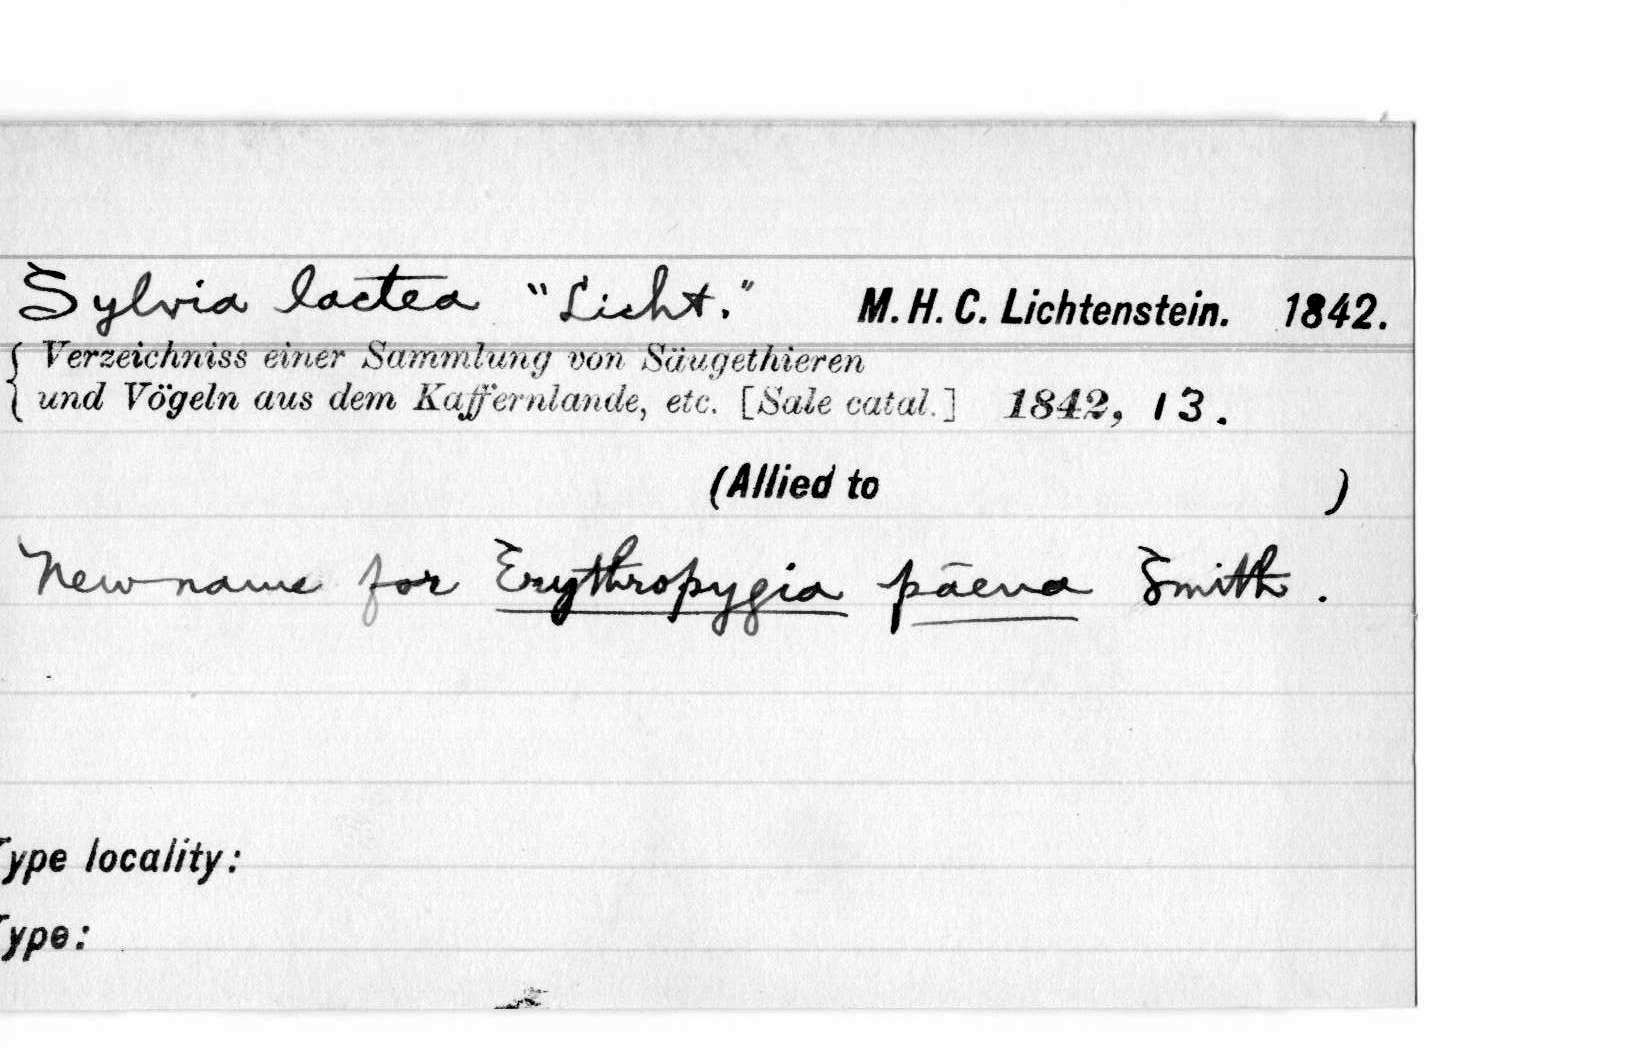 Sylvia lactea "Licht." M. H. C. Lichtenstein. 1842.
{ Verzeichniss einer Sammlung von Säugethieren
und Vögeln aus dem Kaffernlande, etc. [Sale catal.] 1842, 13.
(Allied to )
New name for Erythropygia päena Smith.
Type locality:
Type: